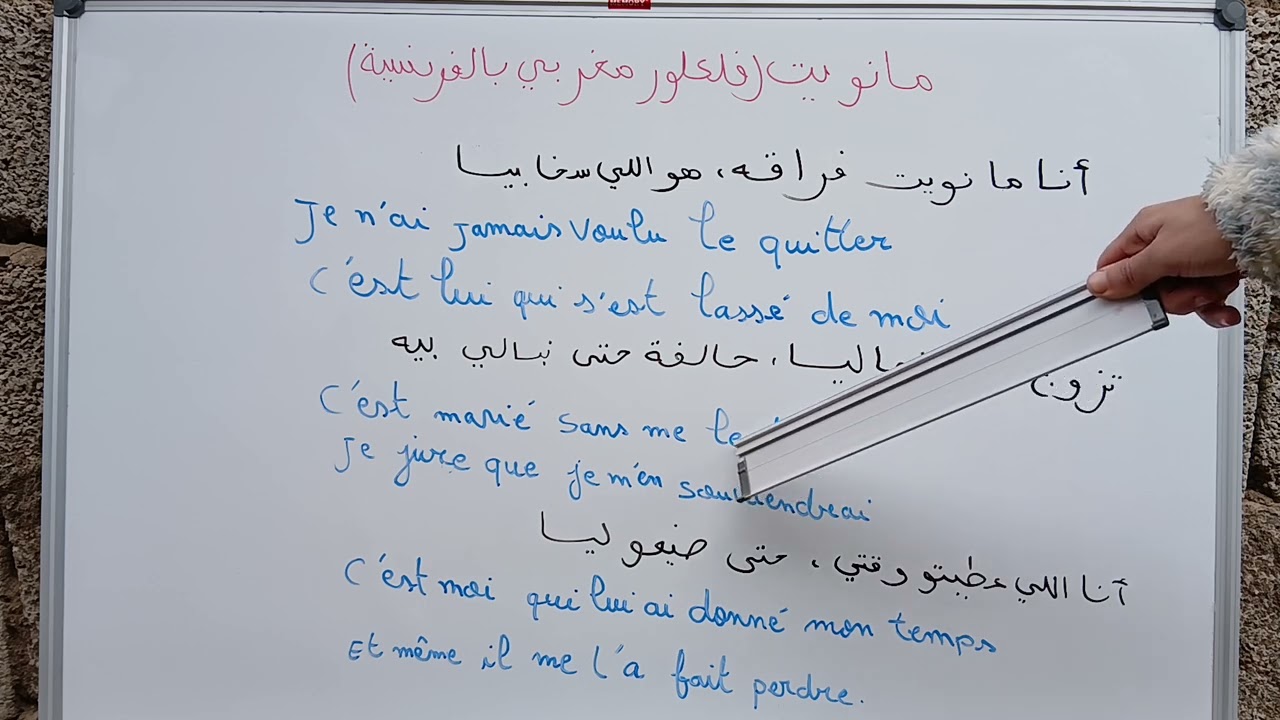 مانويت (فلكلور مغربي بالفرنسية)
أنا ما نويت فراقه، هو اللي سخا بيا
Je n'ai jamais voulu le quitter
C'est lui qui s'est lassé de moi
تزوج ليا، حالفة حتى نبالي بيه
C'est marié sans me le
Je jure que je m'en souviendrai
أنا اللي عطيتو وقتي، حتى ضيعو ليا
C'est moi qui lui ai donné mon temps
Et même il me l'a fait perdre.